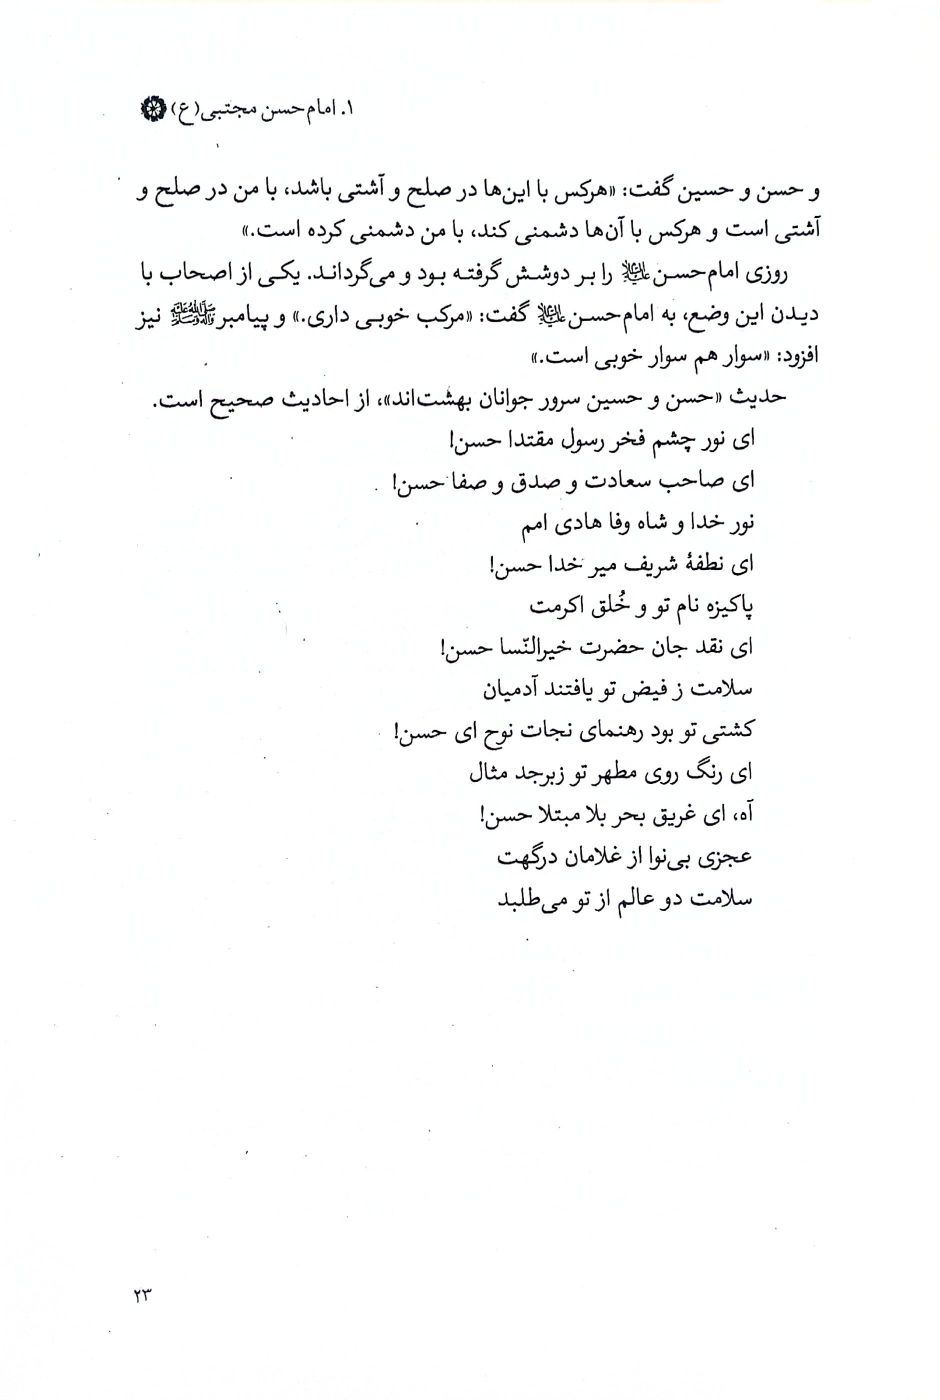 ۱. امام حسن مجتبی(ع)
و حسن و حسین گفت: «هرکس با این‌ها در صلح و آشتی باشد، با من در صلح و
آشتی است و هرکس با آن‌ها دشمنی کند، با من دشمنی کرده است.»
روزی امام‌حسن علیه‌السلام را بر دوشش گرفته بود و می‌گرداند. یکی از اصحاب با
دیدن این وضع، به امام‌حسن علیه‌السلام گفت: «مرکب خوبی داری.» و پیامبر ﷺ نیز
افزود: «سوار هم سوار خوبی است.»
حدیث «حسن و حسین سرور جوانان بهشت‌اند»، از احادیث صحیح است.
ای نور چشم فخر رسول مقتدا حسن!
ای صاحب سعادت و صدق و صفا حسن!
نور خدا و شاه وفا هادی امم
ای نطفهٔ شریف میر خدا حسن!
پاکیزه نام تو و خُلق اکرمت
ای نقد جان حضرت خیرالنّسا حسن!
سلامت ز فیض تو یافتند آدمیان
کشتی تو بود رهنمای نجات نوح ای حسن!
ای رنگ روی مطهر تو زبرجد مثال
آه، ای غریق بحر بلا مبتلا حسن!
عجزی بی‌نوا از غلامان درگهت
سلامت دو عالم از تو می‌طلبد
۲۳